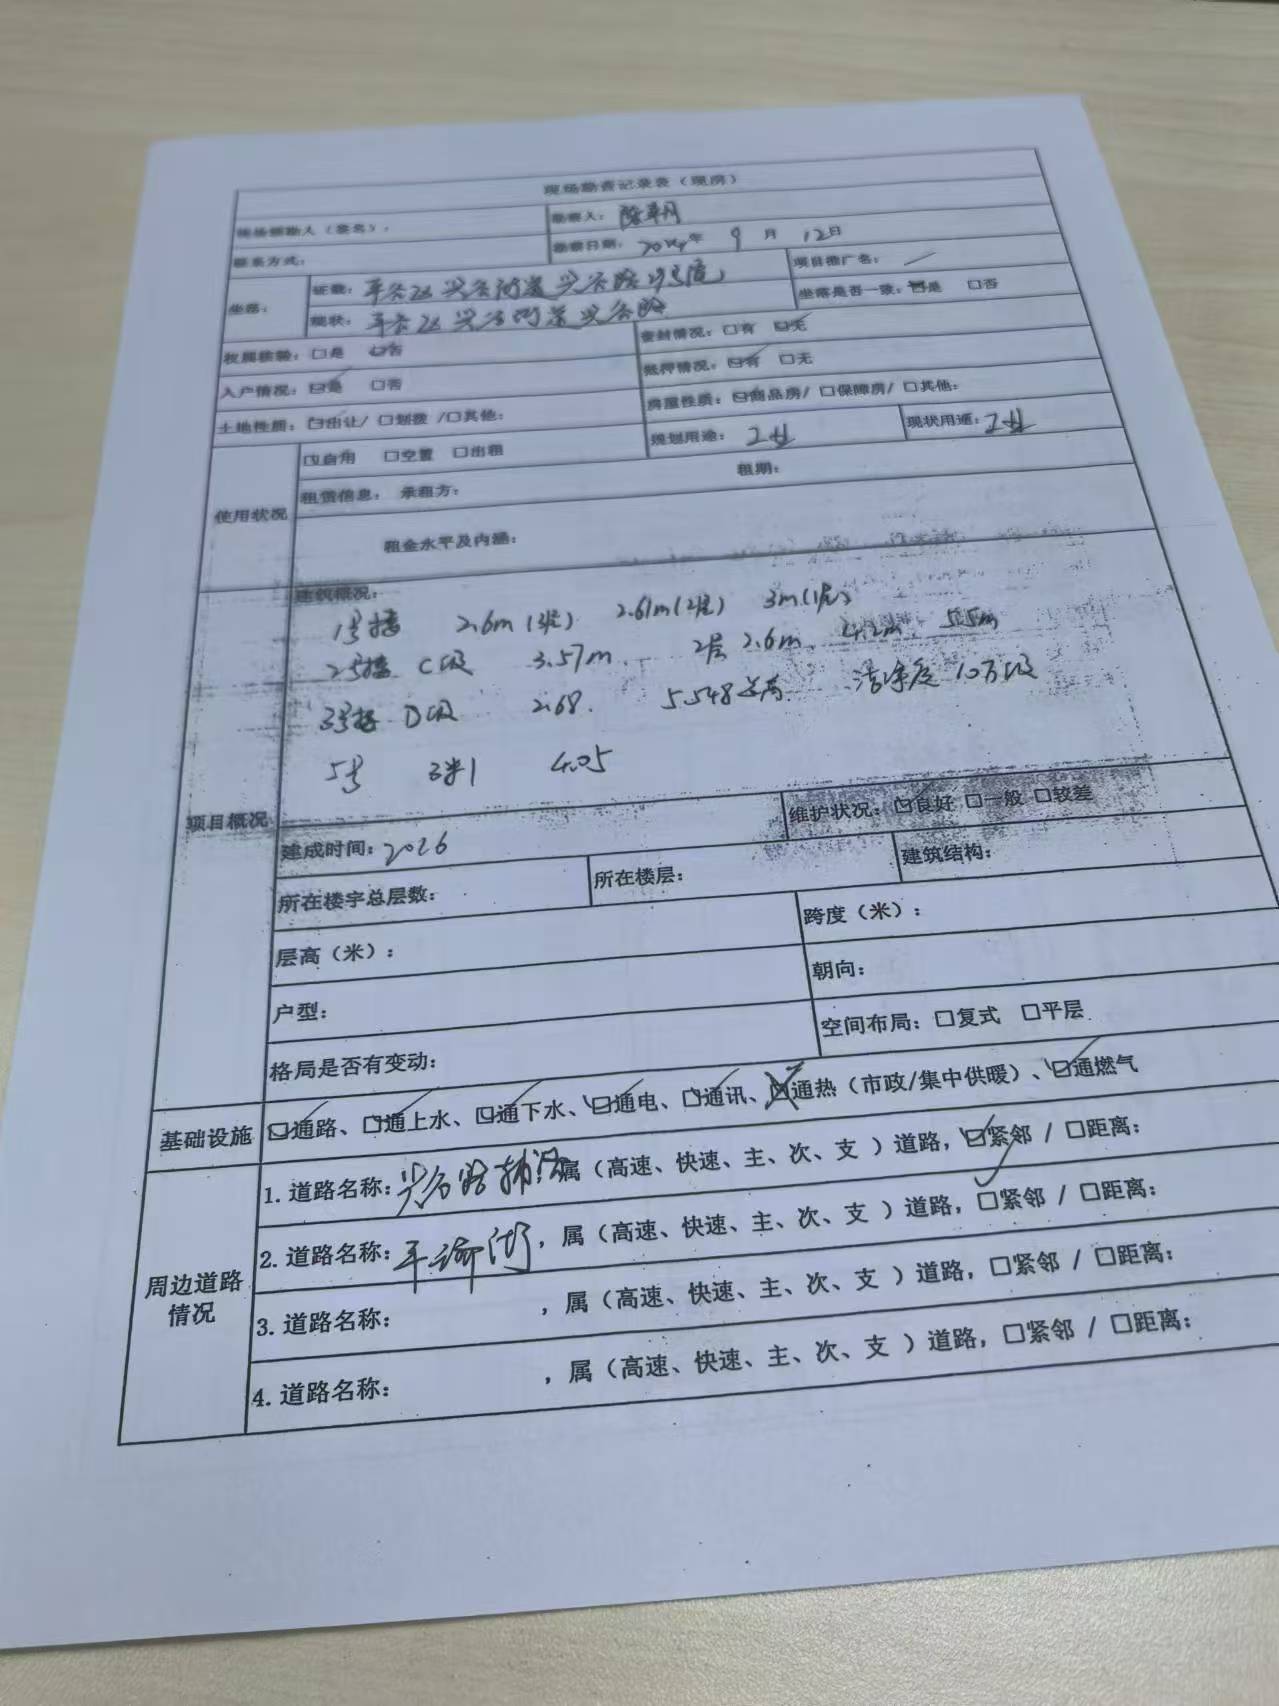 现场勘查记录表（现房）
现场领勘人（签名）： 勘察人：
联系方式： 勘察日期： 年 9 月 12日
坐落： 证载：平谷区兴谷 兴谷路 号院 项目推广名：
现状：平谷区兴谷 兴谷路 坐落是否一致：☑是 □否
权属核验：□是 ☑否 查封情况：□有 ☑无
入户情况：☑是 □否 抵押情况：☑有 □无
土地性质：☑出让/ □划拨 /□其他： 房屋性质：☑商品房/ □保障房/ □其他：
使用状况 ☑自用 □空置 □出租 规划用途：工业 现状用途：工业
租赁信息： 承租方： 租期：
租金水平及内涵：
项目概况 建筑概况：
1号楼 2.6m(3层) 2.61m(2层) 3m(1层)
2号楼 C级 3.57m 2层 2.6m 4.2m 5.5m
3号楼 D级 2.68. 5.548 洁净度10万级
5号 4.05
建成时间：2016 维护状况：☑良好 □一般 □较差
所在楼宇总层数： 所在楼层： 建筑结构：
层高（米）： 跨度（米）：
户型： 朝向：
格局是否有变动： 空间布局：□复式 □平层
基础设施 ☑通路、☑通上水、☑通下水、☑通电、☑通讯、☒通热（市政/集中供暖）、☑通燃气
周边道路情况 1. 道路名称：兴谷路辅路属（高速、快速、主、次、支 ）道路，☑紧邻 / □距离：
2. 道路名称：平 ，属（高速、快速、主、次、支 ）道路，☑紧邻 / □距离：
3. 道路名称： ，属（高速、快速、主、次、支 ）道路，□紧邻 / □距离：
4. 道路名称： ，属（高速、快速、主、次、支 ）道路，□紧邻 / □距离：